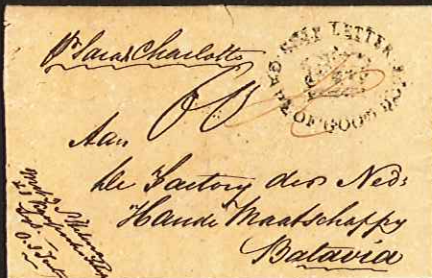 pr. Sara & Charlotte
SHIP LETTER
CAPE OF GOOD HOPE
60
Aan
de Factory der Ned:
Hande Maatschappy
Batavia